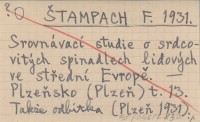 ? O ŠTAMPACH F. 1931.
Srovnávací studie o srdco-
vitých spinadlech lidových
ve střední Evropě.
Plzeňsko (Plzeň) t. 13.
Takže odbitka (Plzeň 1931)